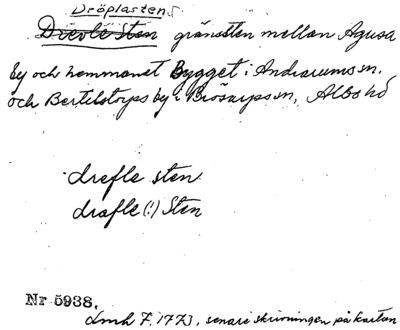 Dröplasten
Drevle Sten gränsten mellan Agusa
by och hemmanet Bygget i Andrarums sn.
och Bertilstorps by i Brösarps sn, Albo hd
drefle sten
drafle (!) Sten
Nr 5938.
Lmh 7. 1773, senare skrivningen på kartan